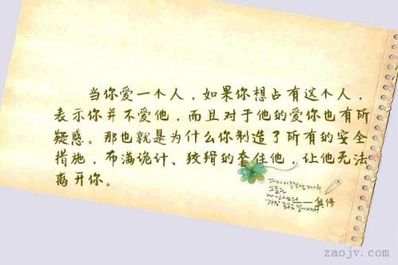 当你爱一个人，如果你想占有这个人，
表示你并不爱他，而且对于他的爱你也有所
疑惑。那也就是为什么你制造了所有的安全
措施，布满诡计、狡猾的套住他，让他无法
离开你。
——奥修
zaojv.com